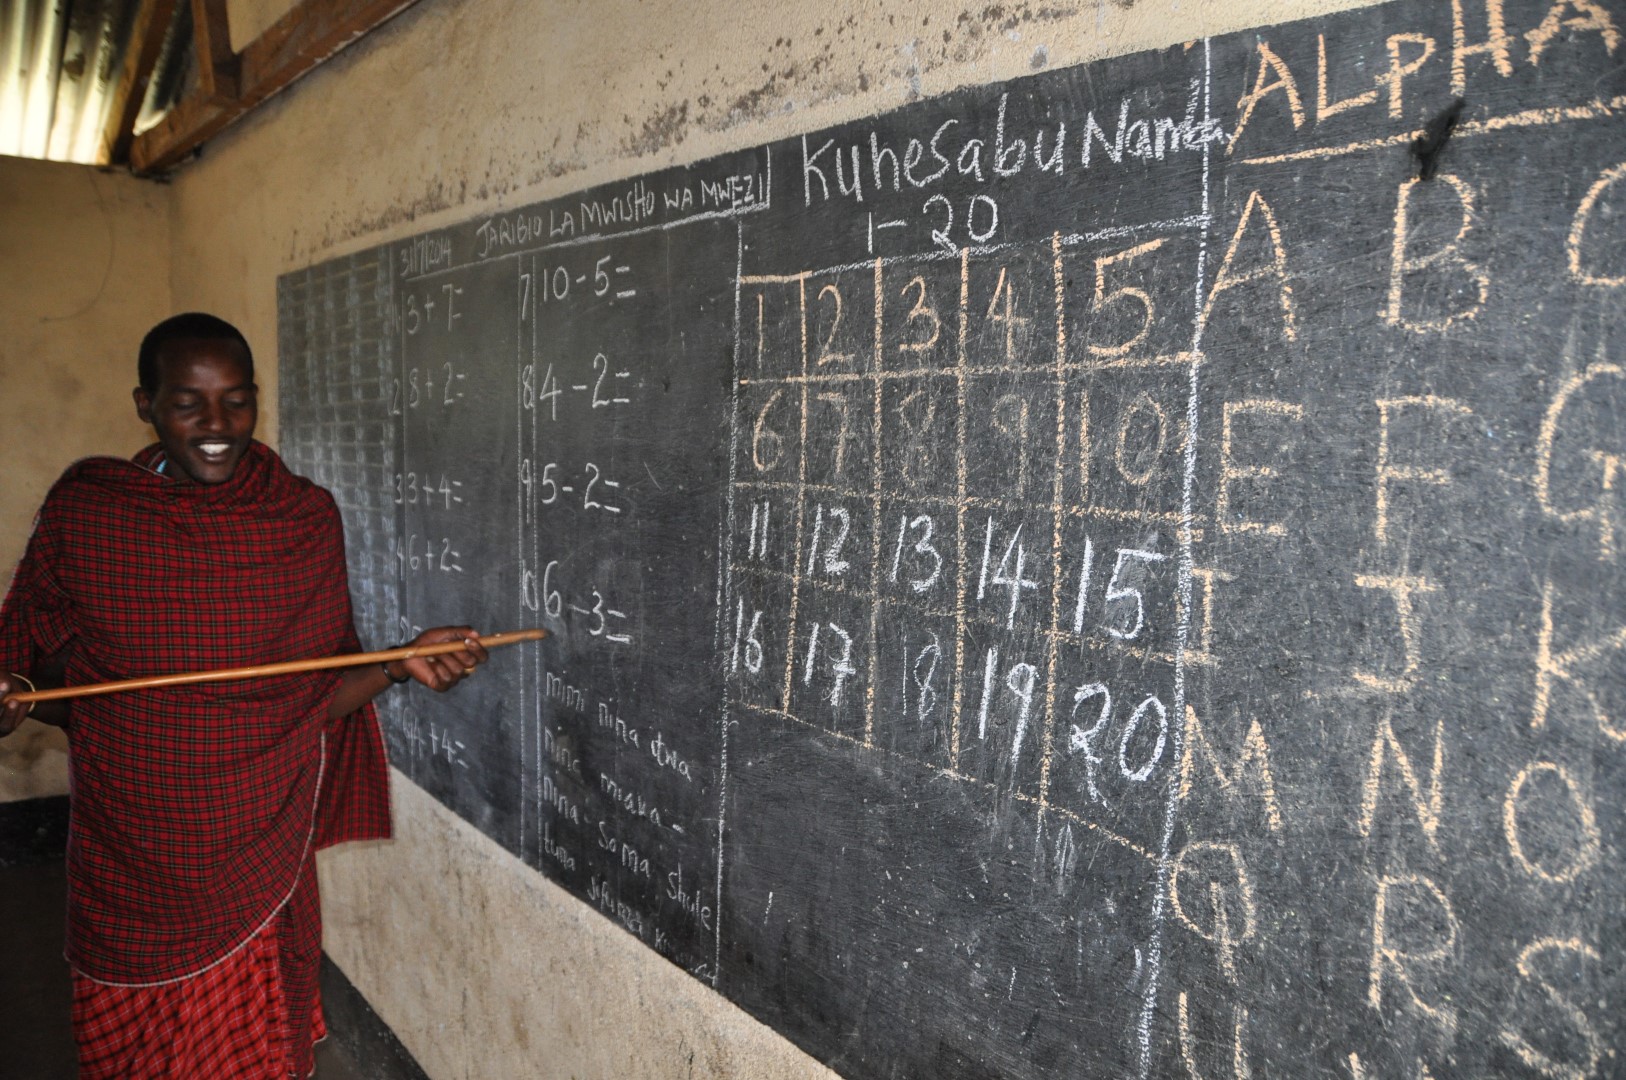 31/7/2014 JARIBIO LA MWISHO WA MWEZI
3+7=
2 8+2=
3 3+4=
4 6+2=
4+4=
7 10-5=
8 4-2=
9 5-2=
10 6-3=
mimi nina itwa
nina miaka-
nina soma shule
tuna jifunza
Kuhesabu Namba
1-20
1 2 3 4 5
6 7 8 9 10
11 12 13 14 15
16 17 18 19 20
ALPHA
A B C
E F G
I J K
M N O
Q R S
U